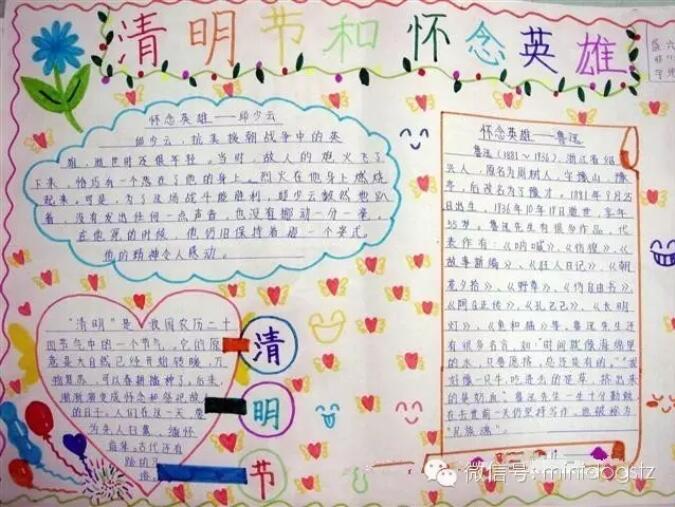 清明节和怀念英雄
怀念英雄——邱少云
邱少云，抗美援朝战争中的英
雄，逝世时还很年轻。当时，敌人的炮火飞了
下来，恰巧有一个落在了他的身上。烈火在他身上燃烧
起来。可是，为了这场战斗能胜利，邱少云毅然地趴
着，没有发出任何一点声音，也没有挪动一分一毫。
在他死的时候，他仍旧保持着这一个姿式。
他的精神令人感动。
怀念英雄——鲁迅
鲁迅（1881～1936），浙江省绍
兴人，原名为周树人，字豫山、豫
亭，后改名为了豫才。1881年9月25
日出生，1936年10月19日逝世，享年
55岁。鲁迅先生有很多作品，代
表作有：《呐喊》、《彷徨》、《
故事新编》、《狂人日记》、《朝
花夕拾》、《野草》、《伪自由书》、
《阿Q正传》、《孔乙己》、《长明
灯》、《鱼和猫》等。鲁迅先生还
有很多名言，如"时间就像海绵里
的水，只要愿挤，总还是有的。""我
好像一只牛，吃进去的是草，挤出来
的是奶血"鲁迅先生一生十分勤勉，
在去世前一天仍坚持写作，他被称为
"民族魂"。
"清明"是我国农历二十
四节气中的一个节气。它的原
意是大自然已经开始转暖，万
物复苏，可以春耕播种了。后来，
渐渐演变成怀念和祭祀故
的日子。人们在这一天 祭
为先人扫墓，缅怀
自来。古代还有
踏的习
俗
清
明
节
微信号: minidogstz